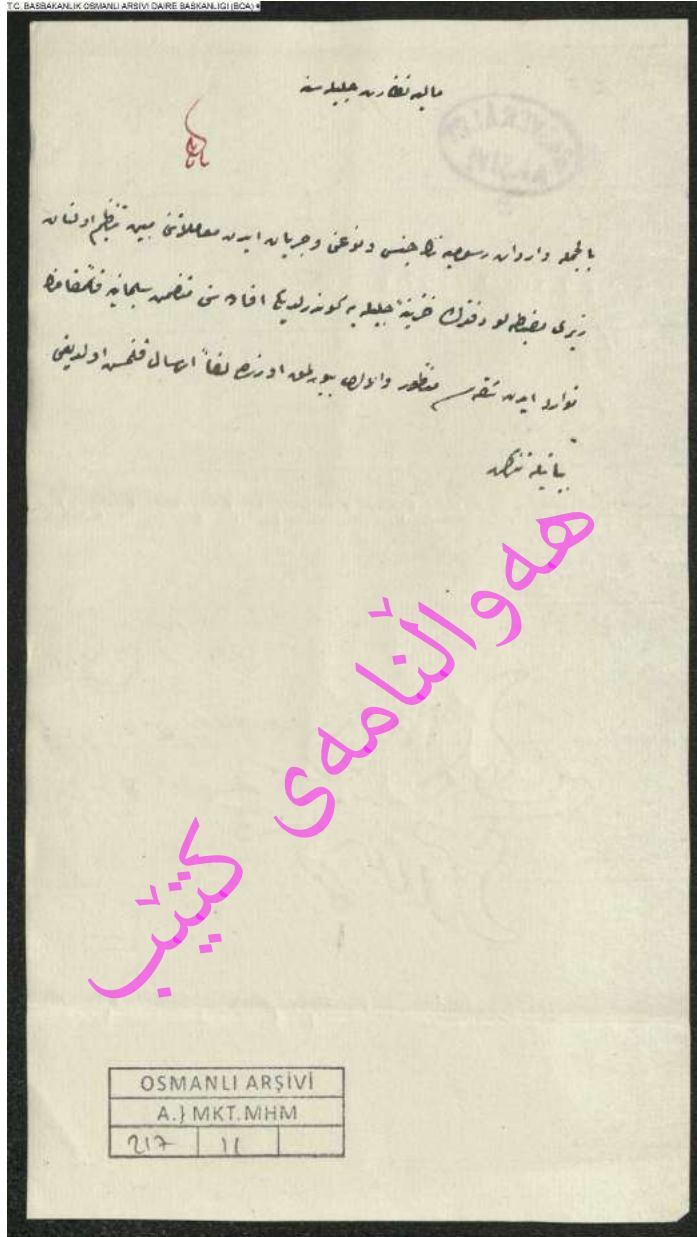 T.C. BASBAKANLIK OSMANLI ARSIVI DAIRE BASKANLIGI (BOA)
ماليه نظارت جليله سنه
بالجمله واردات رسوميه نك جنس ونوعنى وجريان ايدن معاملاتنى مبين تنظيم اولنان
ذيلى مضبطه لو دفترك خزينهٔ جليله يه كوندرلديكى افاده سنى متضمن سليمانيه قائمقامندن
توارد ايدن شقه منظور والالرى بيورلمق اوزره لفاً ارسال قلنمش اولديغى
بيانيله تذكره
هەواڵنامەی کتێب
OSMANLI ARŞİVİ
A.} MKT.MHM
217 11